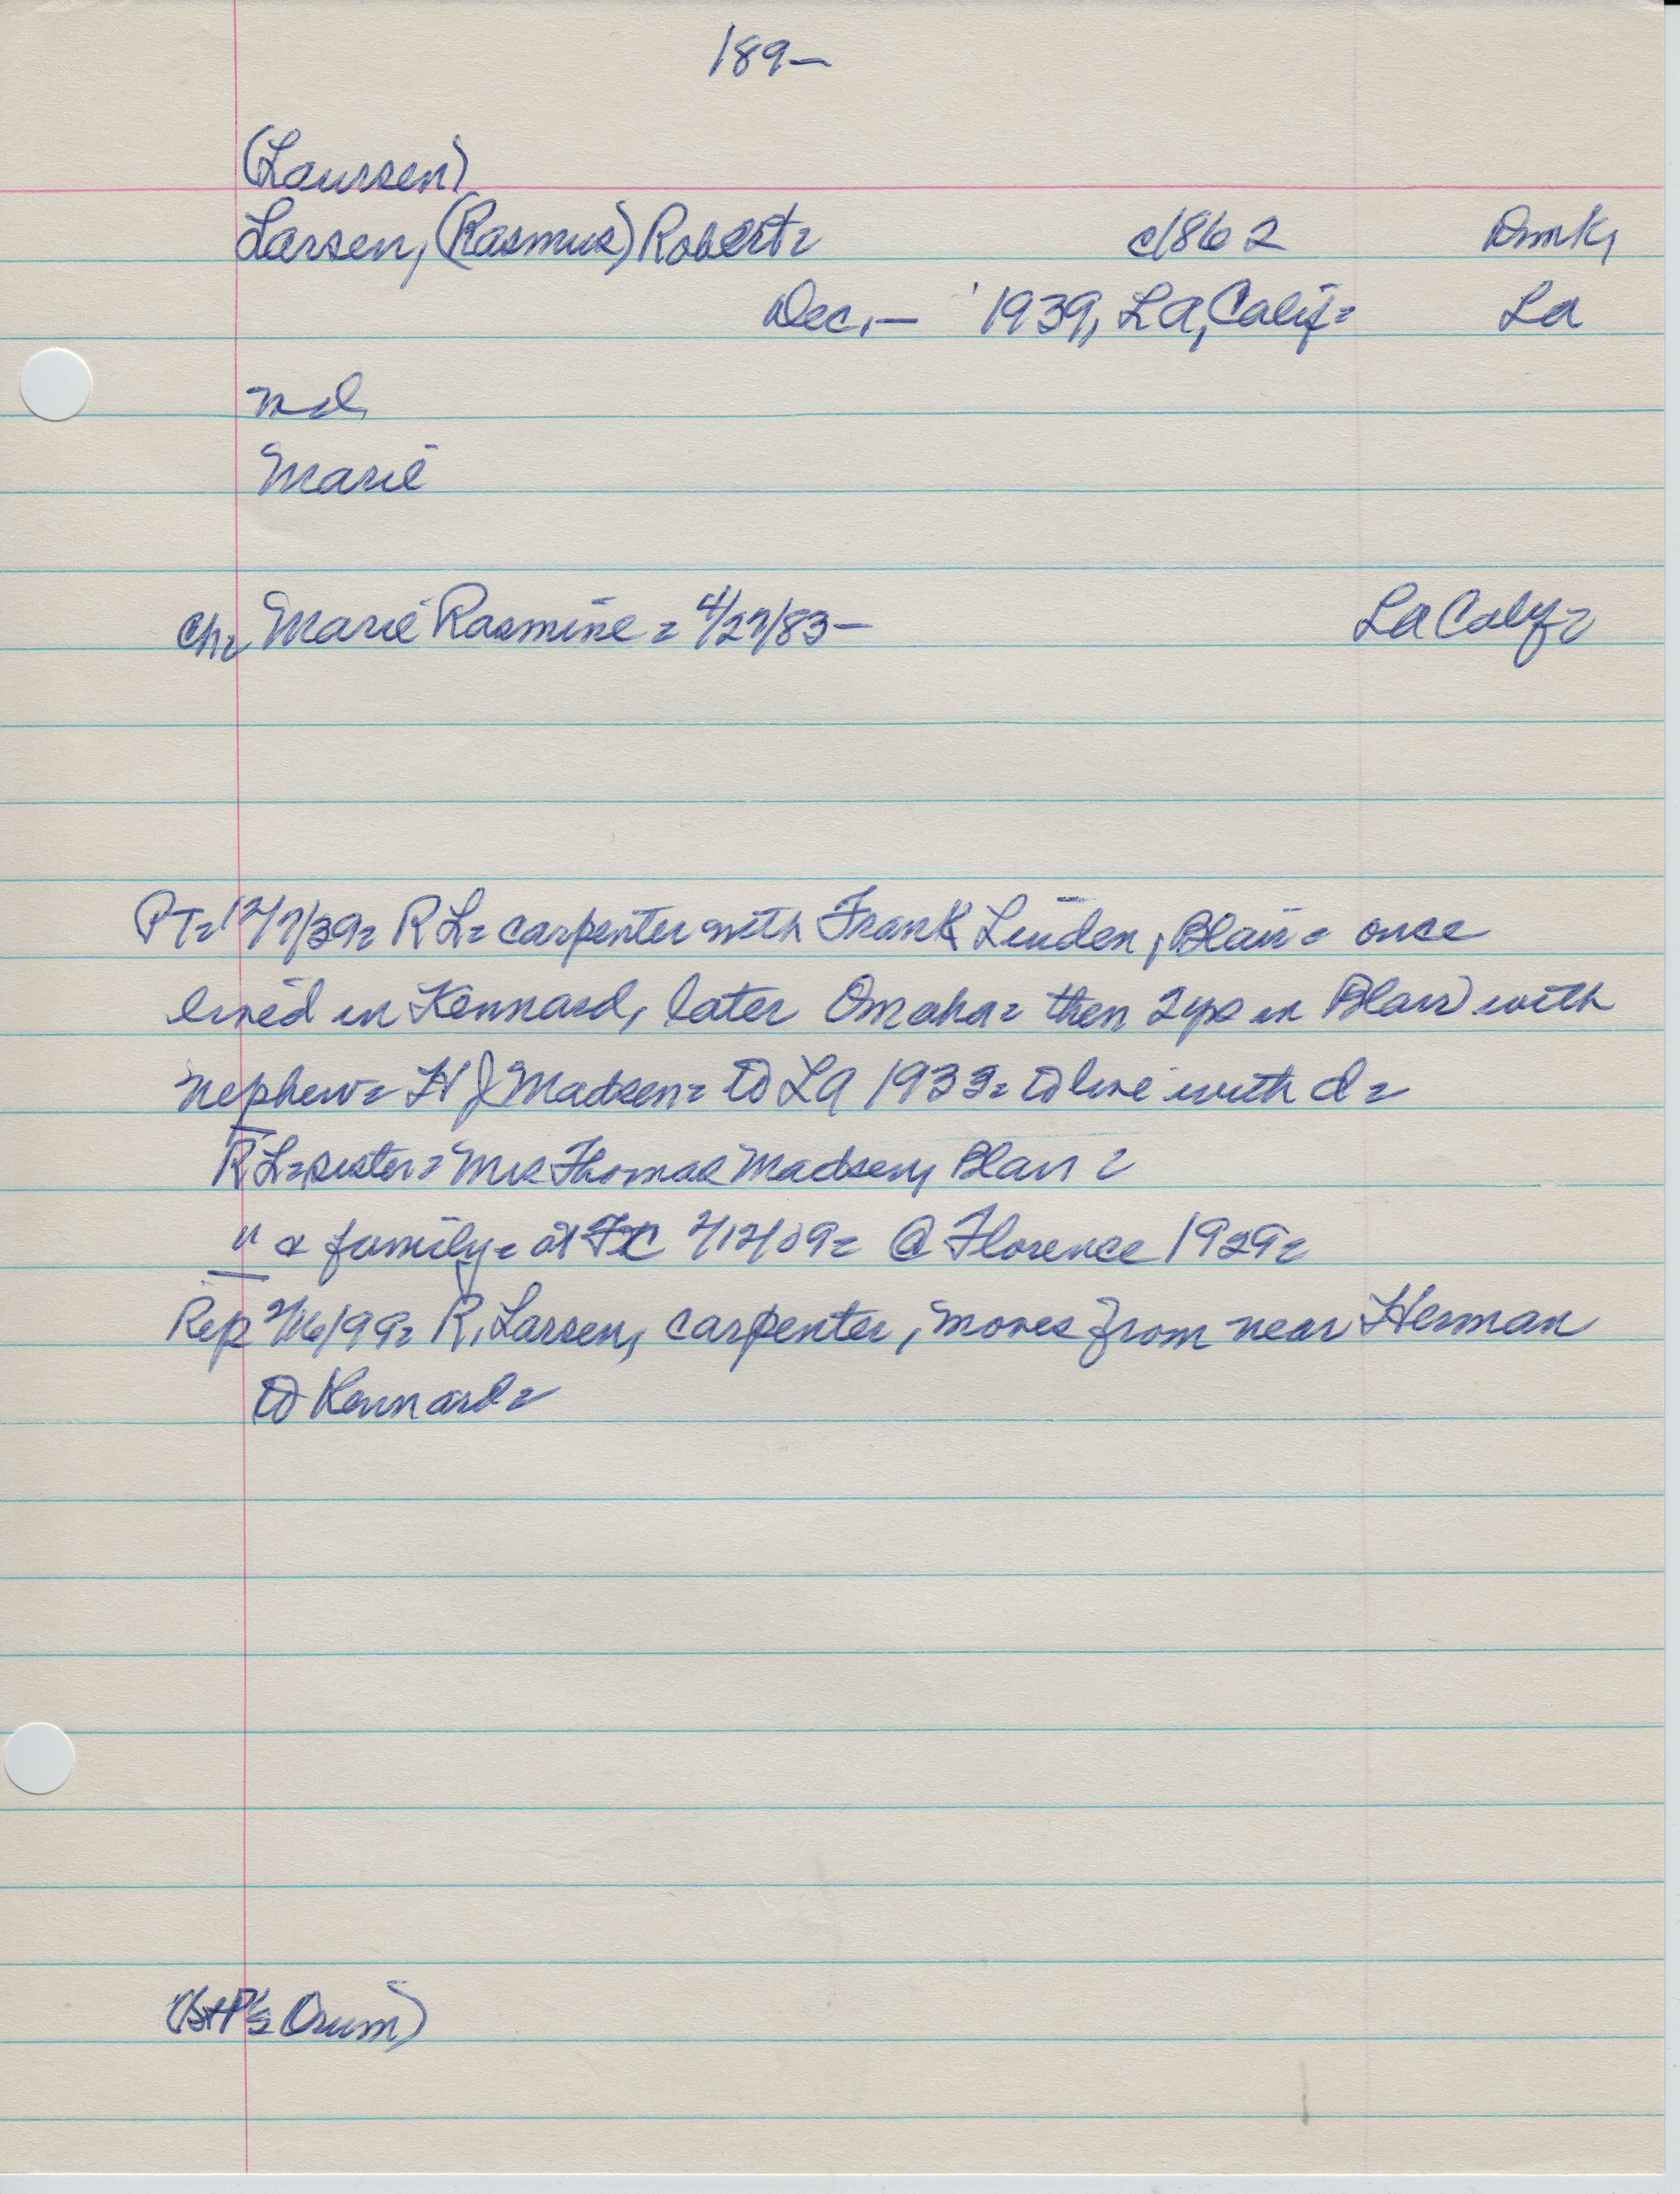 189-
(Laursen)
Larsen, (Rasmus) Robert= c1862 Dmk,
Dec,- 1939, LA, Calif= La
md,
Marie
ch= Marie Rasmine= 4/27/83- La Calif=
PT= 12/7/39= R L= carpenter with Frank Linden, Blair= once
lived in Kennard, later Omaha= then 2 yrs in Blair with
nephew= H J Madsen= to LA 1933= to live with d=
R L= sister= Mrs Thomas Madsen, Blair=
" & family= at FC 2/12/09= @ Florence 1929=
Rep 2/16/99= R, Larsen, carpenter, moves from near Herman
to Kennard=
Orum)